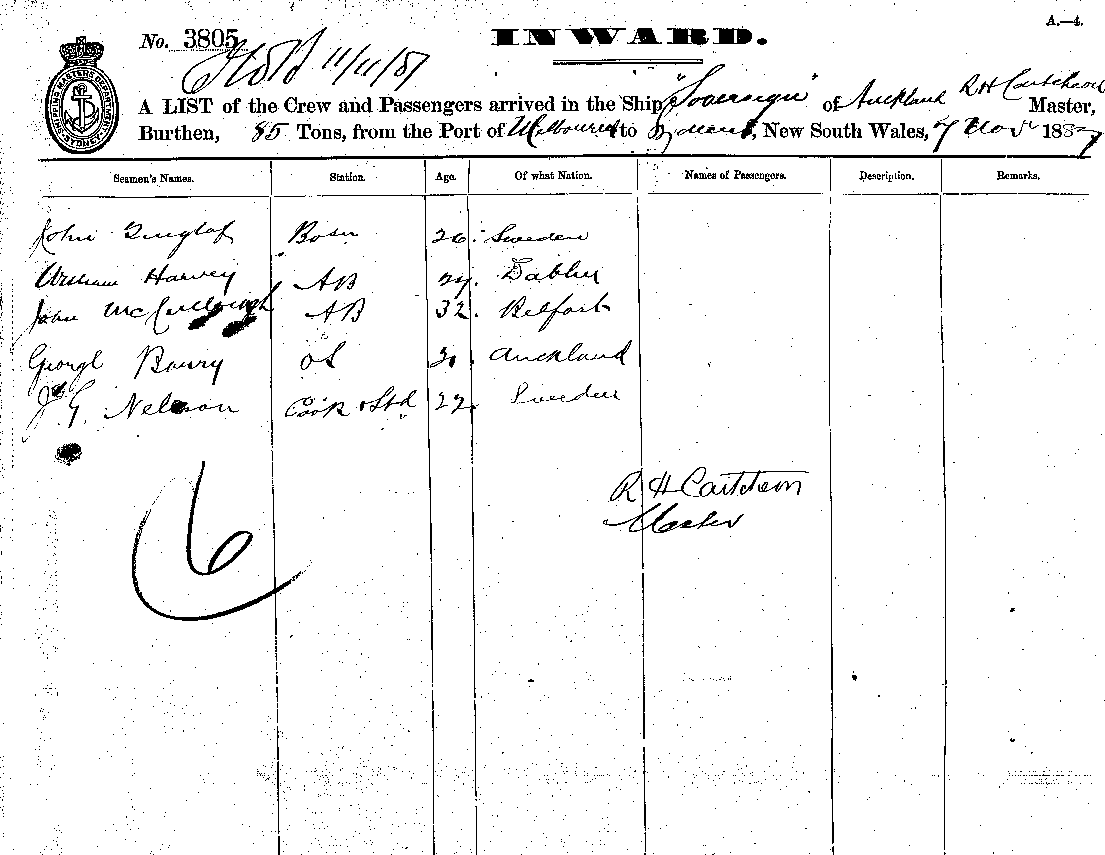 A.—4.
No. 3805
INWARD.
11/11/87
A LIST of the Crew and Passengers arrived in the Ship "Sovereign" of Auckland R H Master,
Burthen, 85 Tons, from the Port of Melbourne to Sydney, New South Wales, 7 Novr 1887
SHIPPING MASTERS DEPARTMENT SYDNEY
Seamen's Names. Station. Age. Of what Nation. Names of Passengers. Description. Remarks.
John Bosn 26 Sweden
William Harvey AB 27. Dublin
John McCullough AB 32. Belfast
George OS Auckland
J. G. Nelson Cook & Std Sweden
R H
Master
6